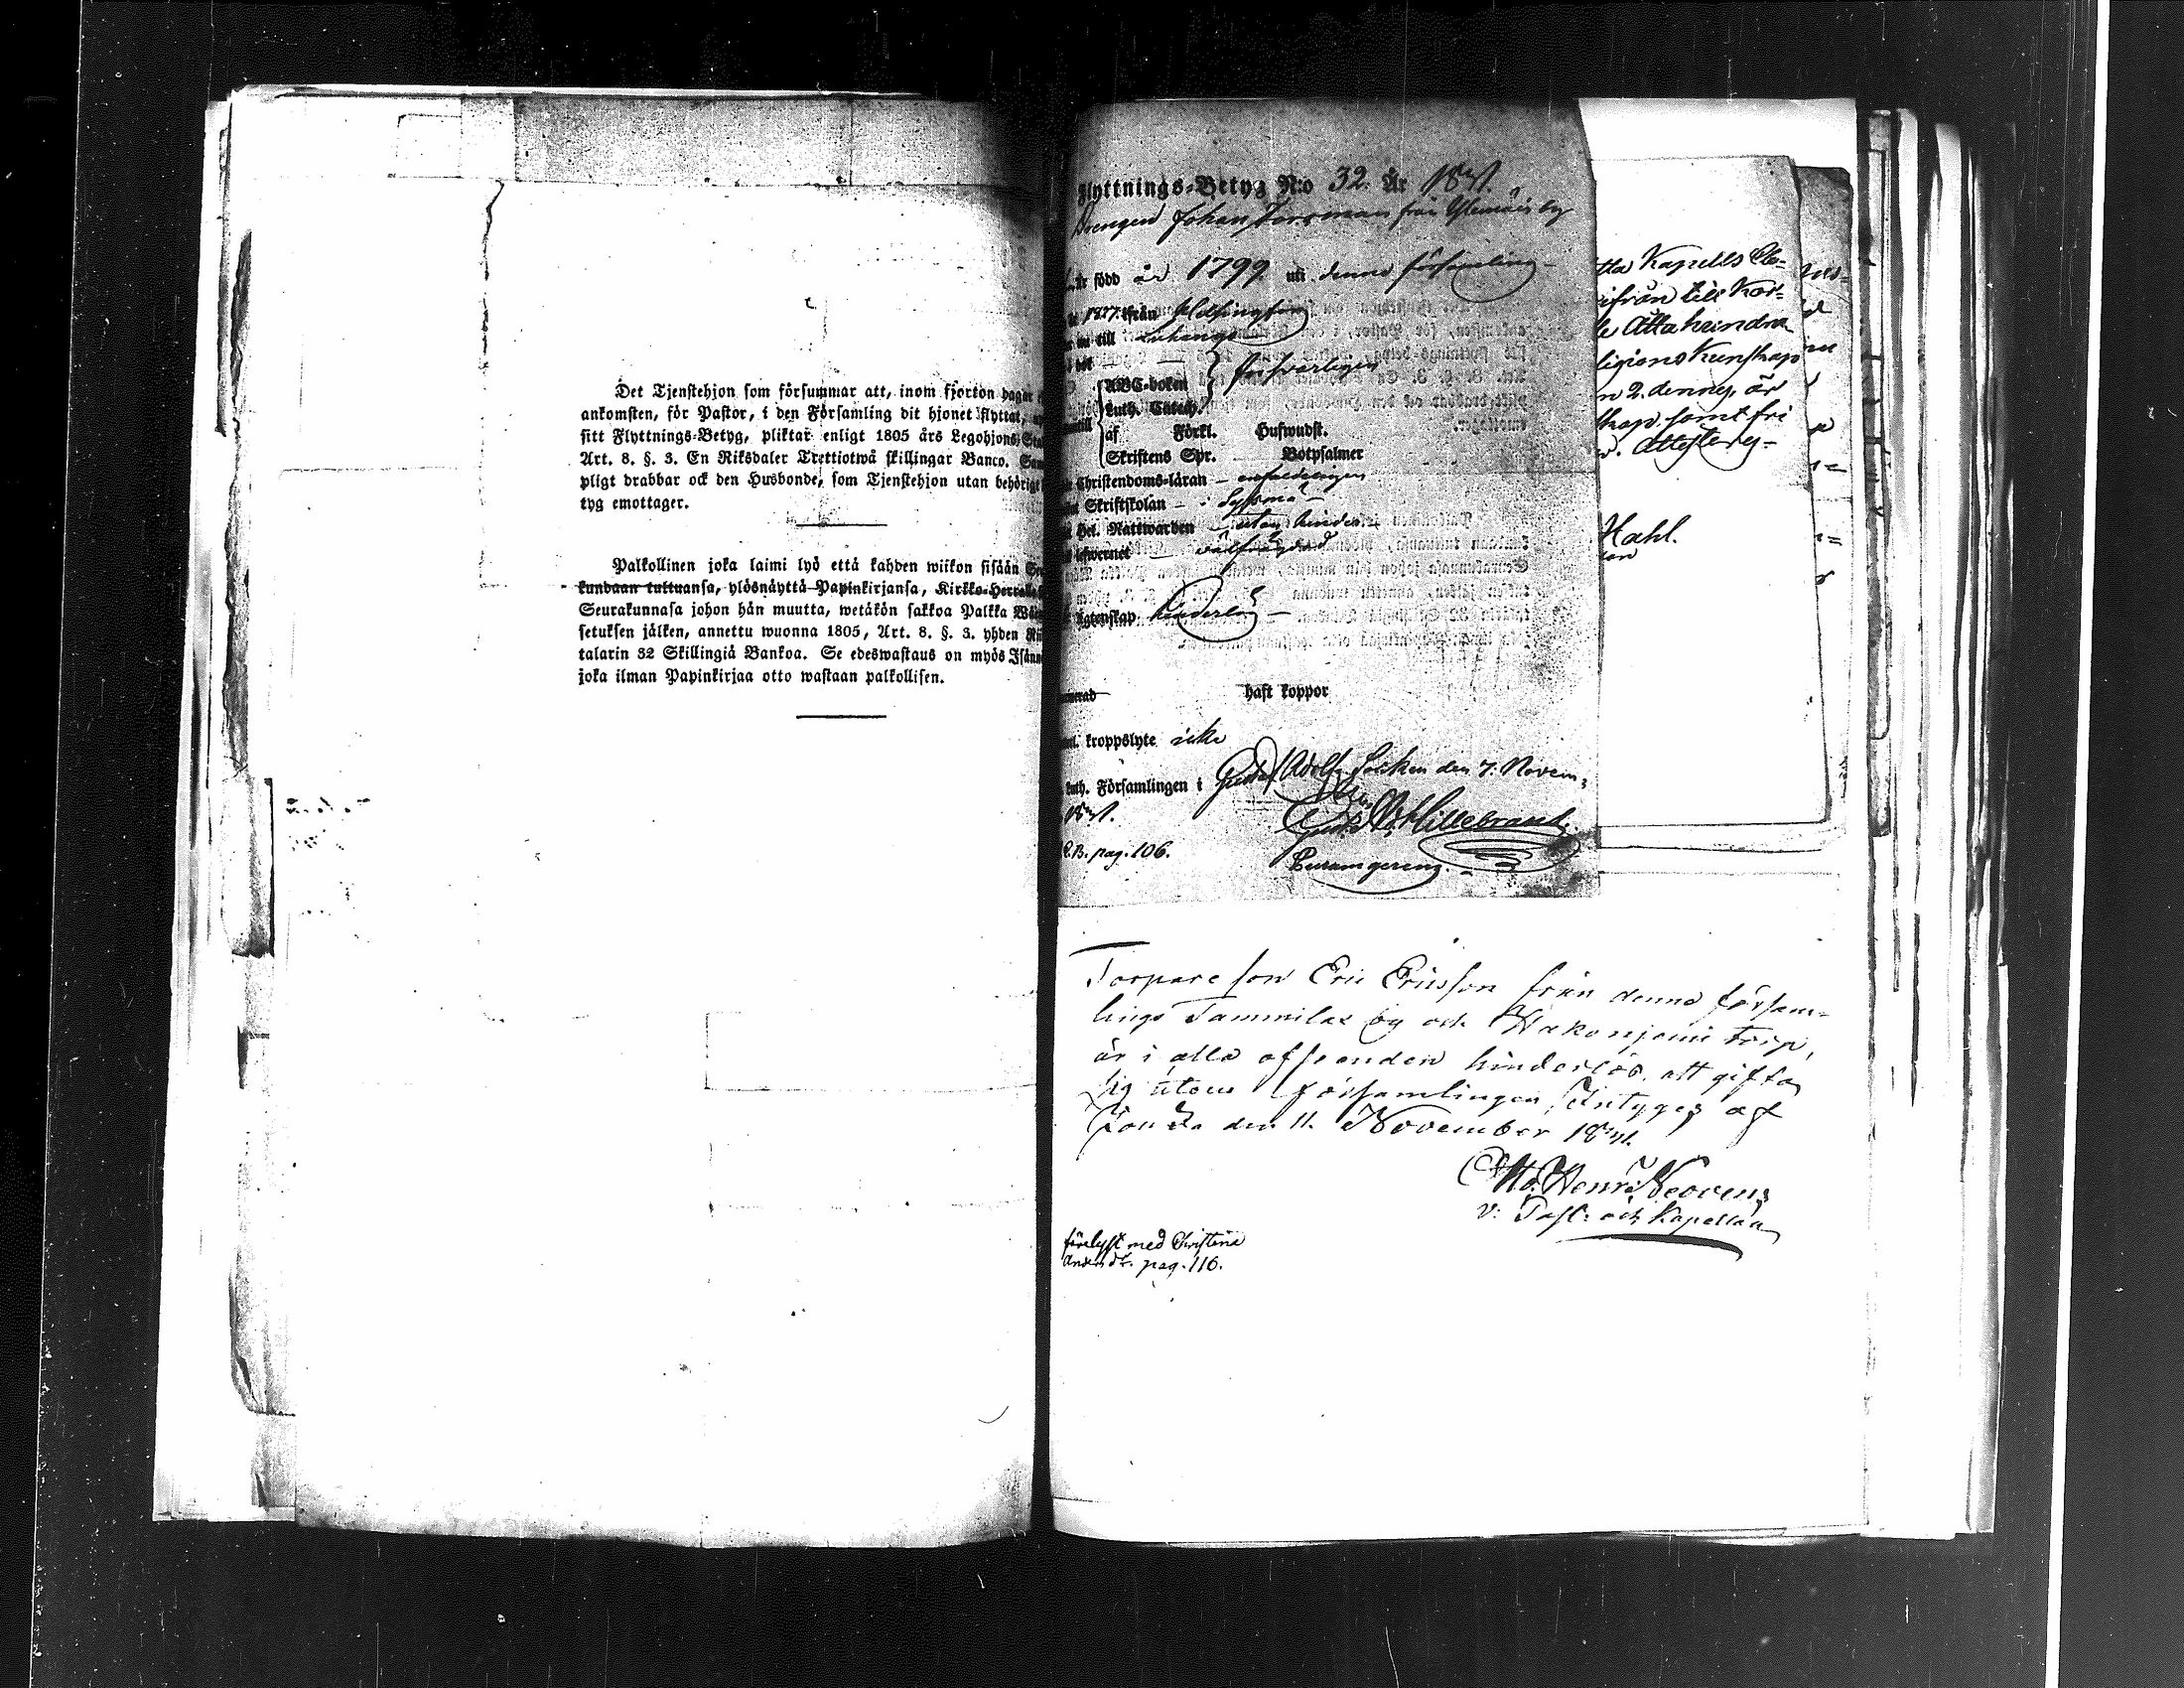 Det Tjenstehjon som försummar att, inom fjorton dagar
ankomsten, för Pastor, i den Församling dit hjonet flyttat,
sitt Flyttnings-Betyg, pliktar enligt 1805 års Legohjons-
Art. 8. §. 3. En Riksdaler Trettiotwå skillingar Banco.
pligt drabbar ock den Husbonde, som Tjenstehjon utan behörigt
tyg emottager.
Palkollinen joka laimi lyö että kahden wiikon sisään
kundaan tultuansa, ylösnäyttä Papinkirjansa, Kirkko-Herralle
Seurakunnasa johon hän muutta, wetäkön sakkoa Palkka
setuksen jälken, annettu wuonna 1805, Art. 8. §. 3. yhden
talarin 32 Skillingiä Bankoa. Se edeswastaus on myös
joka ilman Papinkirjaa otto wastaan palkollisen.
Flyttnings-Betyg N:o 32. År 1831.
Drengen Johan Forsman från by
är född år 1799 uti denna församling
1827 ifrån Helsingfors
till Luhango
ABC-boken försvarligen
Luth. Catech.
af Förkl. Hufwudst.
Skriftens Spr. Botpsalmer
Christendoms-läran enfaldeligen
Skriftskolan i Sysmä
Hel. Nattwarden utan hinder
lefwernet välfrägdad
Ägtenskap hinderlös
haft koppor
kroppslyte icke
Luth. Församlingen i Gustaf Adolfs Socken den 7. Novem-
1831.
C.B. pag. 106.
Hillebrand
tta Kapells
ifrån till Kor-
Åtta hundra
ligions Kunskap
n 2. dennes, är
skap samt fri
Attesteras
Hahl.
Torpare son Eric Ericsson från denna försam-
lings Tammilax by och torp,
är i alla afseenden hinderlös att gifta
sig utom församlingen; Intygas af
den 11. November 1831.
V: Past: och Kapellan
förelyst med Christina
Andersdr. pag. 116.